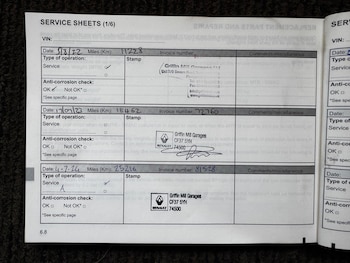 SERVICE SHEETS (1/6)
VIN:
Date: Miles (Km): 11228 Invoice number:
Type of operation: Stamp
Service ✓
Griffin Mill Garages
Anti-corrosion check:
OK ✓ Not OK* □
*See specific page
Date: Miles (Km): Invoice number:
Type of operation: Stamp
Service
Griffin Mill Garages
CF37 5YN
74500
RENAULT
Anti-corrosion check:
OK □ Not OK* □
*See specific page
Date: Miles (Km): 25216 Invoice number:
Type of operation: Stamp
Service
Griffin Mill Garages
CF37 5YN
74500
RENAULT
Anti-corrosion check:
OK □ Not OK* □
*See specific page
6.6
VIN:
Date:
Type of
Service
Anti-cor
OK □
*See spe
Date:
Type of
Service
Anti-cor
OK □
*See spe
Date:
Type of
Service
Anti-cor
OK □
*See spe